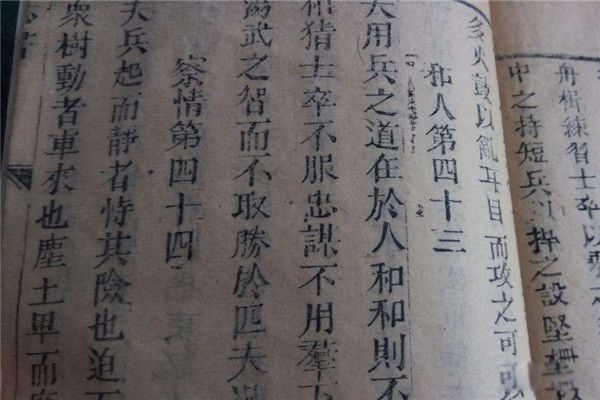 舟楫練習士卒以
中之持短兵以捍之設堅柵
多火鼓以亂耳目而攻之可
和人第四十三
夫用兵之道在於人和和則不
相猜士卒不服忠謀不用羣下
湯武之智而不取勝於匹夫
察情第四十四
夫兵起而靜者恃其險也迫
衆樹動者車來也塵土卑而